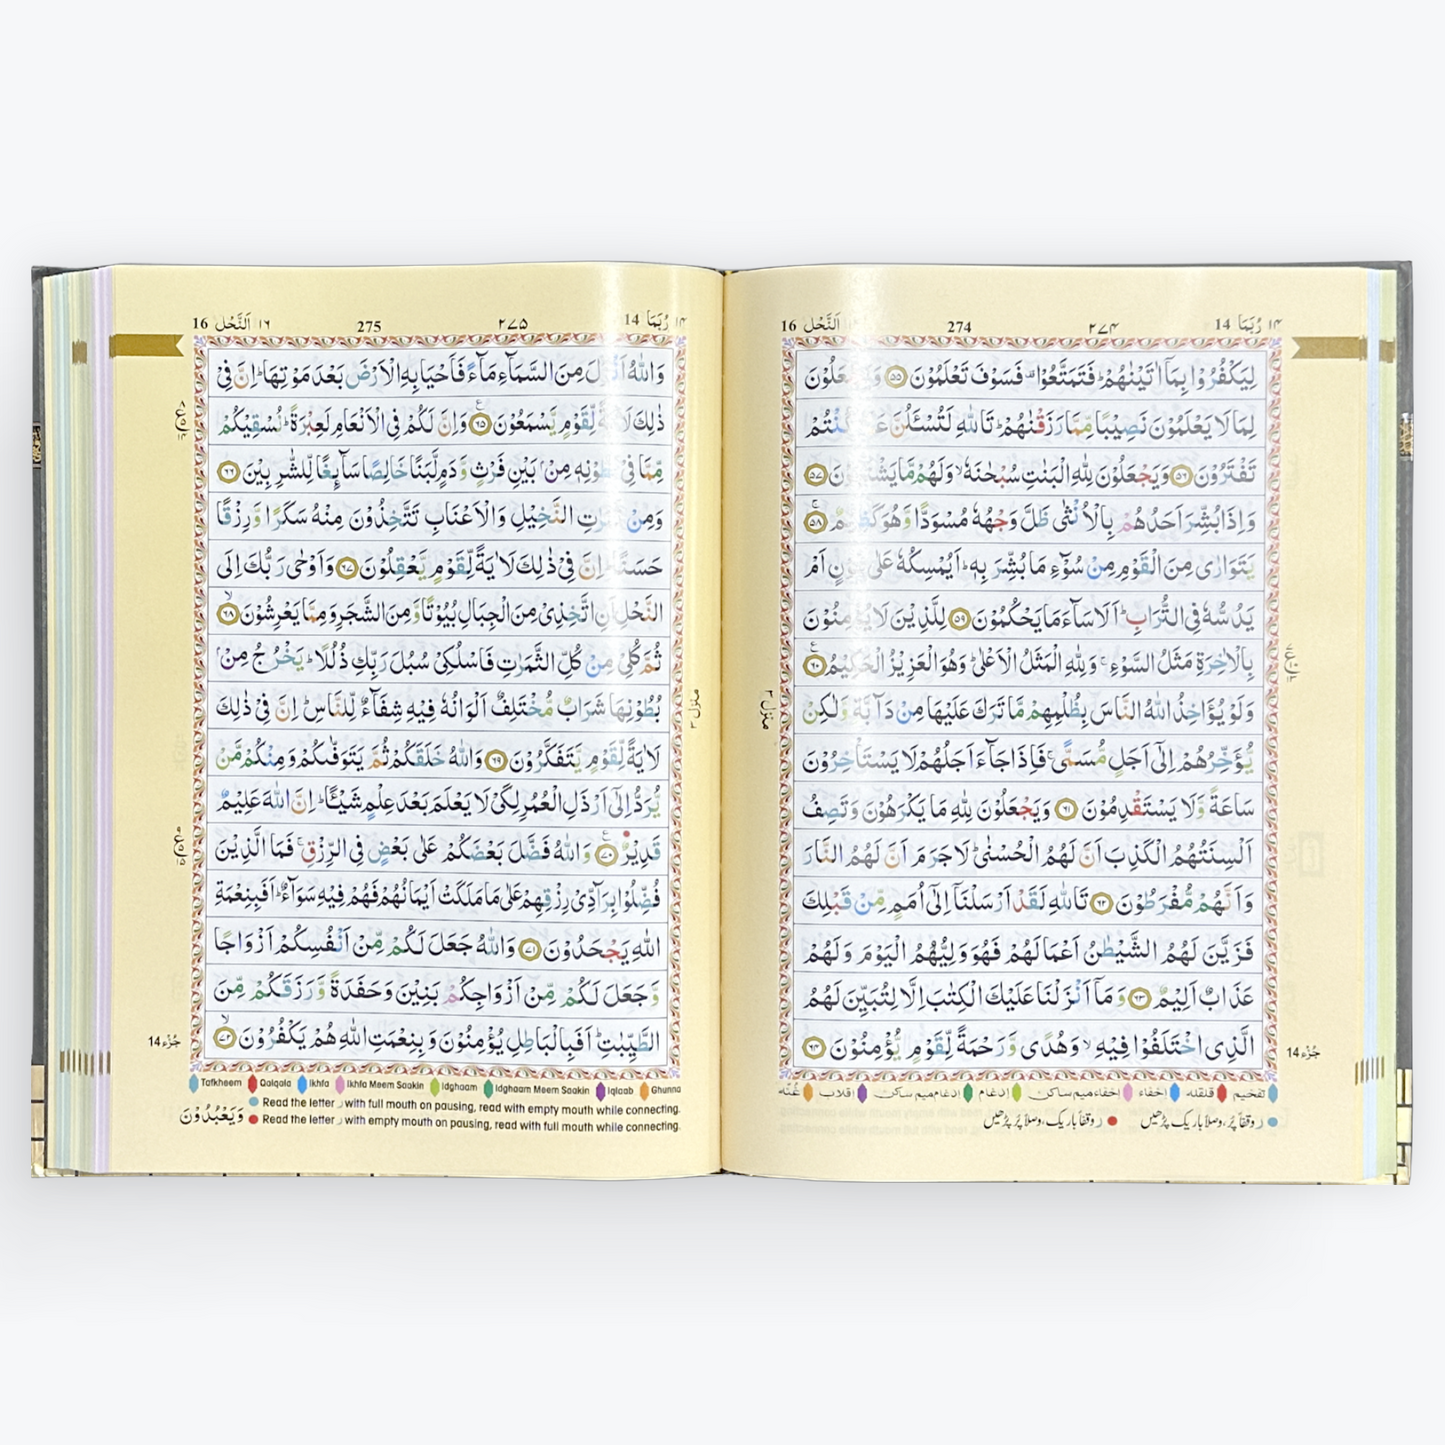 ١٤ رُبَمَا 14
٢٧٤
274
اَلنَّحْل 16
لِيَكْفُرُوْا بِمَاۤ اٰتَيْنٰهُمْ ؕ فَتَمَتَّعُوْا ۫ فَسَوْفَ تَعْلَمُوْنَ ۝۵۵
لِمَا لَا يَعْلَمُوْنَ نَصِيْبًا مِّمَّا رَزَقْنٰهُمْ ؕ تَاللّٰهِ لَتُسْـَٔلُنَّ كُنْتُمْ
تَفْتَرُوْنَ ۝۵۶ وَيَجْعَلُوْنَ لِلّٰهِ الْبَنٰتِ سُبْحٰنَهٗ ۙ وَلَهُمْ مَّا يَشْتَهُوْنَ ۝۵۷
وَاِذَا بُشِّرَ اَحَدُهُمْ بِالْاُنْثٰى ظَلَّ وَجْهُهٗ مُسْوَدًّا وَّهُوَ كَظِيْمٌ ۝۵۸
يَتَوَارٰى مِنَ الْقَوْمِ مِنْ سُوْٓءِ مَا بُشِّرَ بِهٖ ؕ اَيُمْسِكُهٗ عَلٰى هُوْنٍ اَمْ
يَدُسُّهٗ فِى التُّرَابِ ؕ اَلَا سَآءَ مَا يَحْكُمُوْنَ ۝۵۹ لِلَّذِيْنَ لَا يُؤْمِنُوْنَ
بِالْاٰخِرَةِ مَثَلُ السَّوْءِ ۚ وَلِلّٰهِ الْمَثَلُ الْاَعْلٰى ؕ وَهُوَ الْعَزِيْزُ الْحَكِيْمُ ۝۶۰
وَلَوْ يُؤَاخِذُ اللّٰهُ النَّاسَ بِظُلْمِهِمْ مَّا تَرَكَ عَلَيْهَا مِنْ دَآبَّةٍ وَّلٰكِنْ
يُّؤَخِّرُهُمْ اِلٰٓى اَجَلٍ مُّسَمًّى ۚ فَاِذَا جَآءَ اَجَلُهُمْ لَا يَسْتَاْخِرُوْنَ
سَاعَةً وَّلَا يَسْتَقْدِمُوْنَ ۝۶۱ وَيَجْعَلُوْنَ لِلّٰهِ مَا يَكْرَهُوْنَ وَتَصِفُ
اَلْسِنَتُهُمُ الْكَذِبَ اَنَّ لَهُمُ الْحُسْنٰى ؕ لَا جَرَمَ اَنَّ لَهُمُ النَّارَ
وَاَنَّهُمْ مُّفْرَطُوْنَ ۝۶۲ تَاللّٰهِ لَقَدْ اَرْسَلْنَاۤ اِلٰٓى اُمَمٍ مِّنْ قَبْلِكَ
فَزَيَّنَ لَهُمُ الشَّيْطٰنُ اَعْمَالَهُمْ فَهُوَ وَلِيُّهُمُ الْيَوْمَ وَلَهُمْ
عَذَابٌ اَلِيْمٌ ۝۶۳ وَمَاۤ اَنْزَلْنَا عَلَيْكَ الْكِتٰبَ اِلَّا لِتُبَيِّنَ لَهُمُ
الَّذِى اخْتَلَفُوْا فِيْهِ ۙ وَهُدًى وَّرَحْمَةً لِّقَوْمٍ يُّؤْمِنُوْنَ ۝۶۴
منزل ۳
جُزْء 14
تفخیم قلقلہ اخفاء اخفاء میم ساکن ادغام ادغام میم ساکن اقلاب غُنّہ
ر وقفاً پُر، وصلاً باریک پڑھیں
ر وقفاً باریک، وصلاً پُر پڑھیں
١٤ رُبَمَا 14
٢٧٥
275
١٦ اَلنَّحْل 16
وَاللّٰهُ اَنْزَلَ مِنَ السَّمَآءِ مَآءً فَاَحْيَا بِهِ الْاَرْضَ بَعْدَ مَوْتِهَا ؕ اِنَّ فِىْ
ذٰلِكَ لَاٰيَةً لِّقَوْمٍ يَّسْمَعُوْنَ ۝۶۵ وَاِنَّ لَكُمْ فِى الْاَنْعَامِ لَعِبْرَةً ؕ نُسْقِيْكُمْ
مِّمَّا فِىْ بُطُوْنِهٖ مِنْۢ بَيْنِ فَرْثٍ وَّدَمٍ لَّبَنًا خَالِصًا سَآئِغًا لِّلشّٰرِبِيْنَ ۝۶۶
وَمِنْ ثَمَرٰتِ النَّخِيْلِ وَالْاَعْنَابِ تَتَّخِذُوْنَ مِنْهُ سَكَرًا وَّرِزْقًا
حَسَنًا ؕ اِنَّ فِىْ ذٰلِكَ لَاٰيَةً لِّقَوْمٍ يَّعْقِلُوْنَ ۝۶۷ وَاَوْحٰى رَبُّكَ اِلَى
النَّحْلِ اَنِ اتَّخِذِىْ مِنَ الْجِبَالِ بُيُوْتًا وَّمِنَ الشَّجَرِ وَمِمَّا يَعْرِشُوْنَ ۝۶۸
ثُمَّ كُلِىْ مِنْ كُلِّ الثَّمَرٰتِ فَاسْلُكِىْ سُبُلَ رَبِّكِ ذُلُلًا ؕ يَخْرُجُ مِنْۢ
بُطُوْنِهَا شَرَابٌ مُّخْتَلِفٌ اَلْوَانُهٗ فِيْهِ شِفَآءٌ لِّلنَّاسِ ؕ اِنَّ فِىْ ذٰلِكَ
لَاٰيَةً لِّقَوْمٍ يَّتَفَكَّرُوْنَ ۝۶۹ وَاللّٰهُ خَلَقَكُمْ ثُمَّ يَتَوَفّٰىكُمْ وَمِنْكُمْ مَّنْ
يُّرَدُّ اِلٰٓى اَرْذَلِ الْعُمُرِ لِكَىْ لَا يَعْلَمَ بَعْدَ عِلْمٍ شَيْـًٔا ؕ اِنَّ اللّٰهَ عَلِيْمٌ
قَدِيْرٌ ۝۷۰ وَاللّٰهُ فَضَّلَ بَعْضَكُمْ عَلٰى بَعْضٍ فِى الرِّزْقِ ۚ فَمَا الَّذِيْنَ
فُضِّلُوْا بِرَآدِّىْ رِزْقِهِمْ عَلٰى مَا مَلَكَتْ اَيْمَانُهُمْ فَهُمْ فِيْهِ سَوَآءٌ ؕ اَفَبِنِعْمَةِ
اللّٰهِ يَجْحَدُوْنَ ۝۷۱ وَاللّٰهُ جَعَلَ لَكُمْ مِّنْ اَنْفُسِكُمْ اَزْوَاجًا
وَّجَعَلَ لَكُمْ مِّنْ اَزْوَاجِكُمْ بَنِيْنَ وَحَفَدَةً وَّرَزَقَكُمْ مِّنَ
الطَّيِّبٰتِ ؕ اَفَبِالْبَاطِلِ يُؤْمِنُوْنَ وَبِنِعْمَتِ اللّٰهِ هُمْ يَكْفُرُوْنَ ۝۷۲
منزل ۳
جُزْء 14
Tafkheem Qalqala Ikhfa Ikhfa Meem Saakin Idghaam Idghaam Meem Saakin Iqlaab Ghunna
Read the letter ر with full mouth on pausing, read with empty mouth while connecting.
Read the letter ر with empty mouth on pausing, read with full mouth while connecting.
وَيَعْبُدُوْنَ